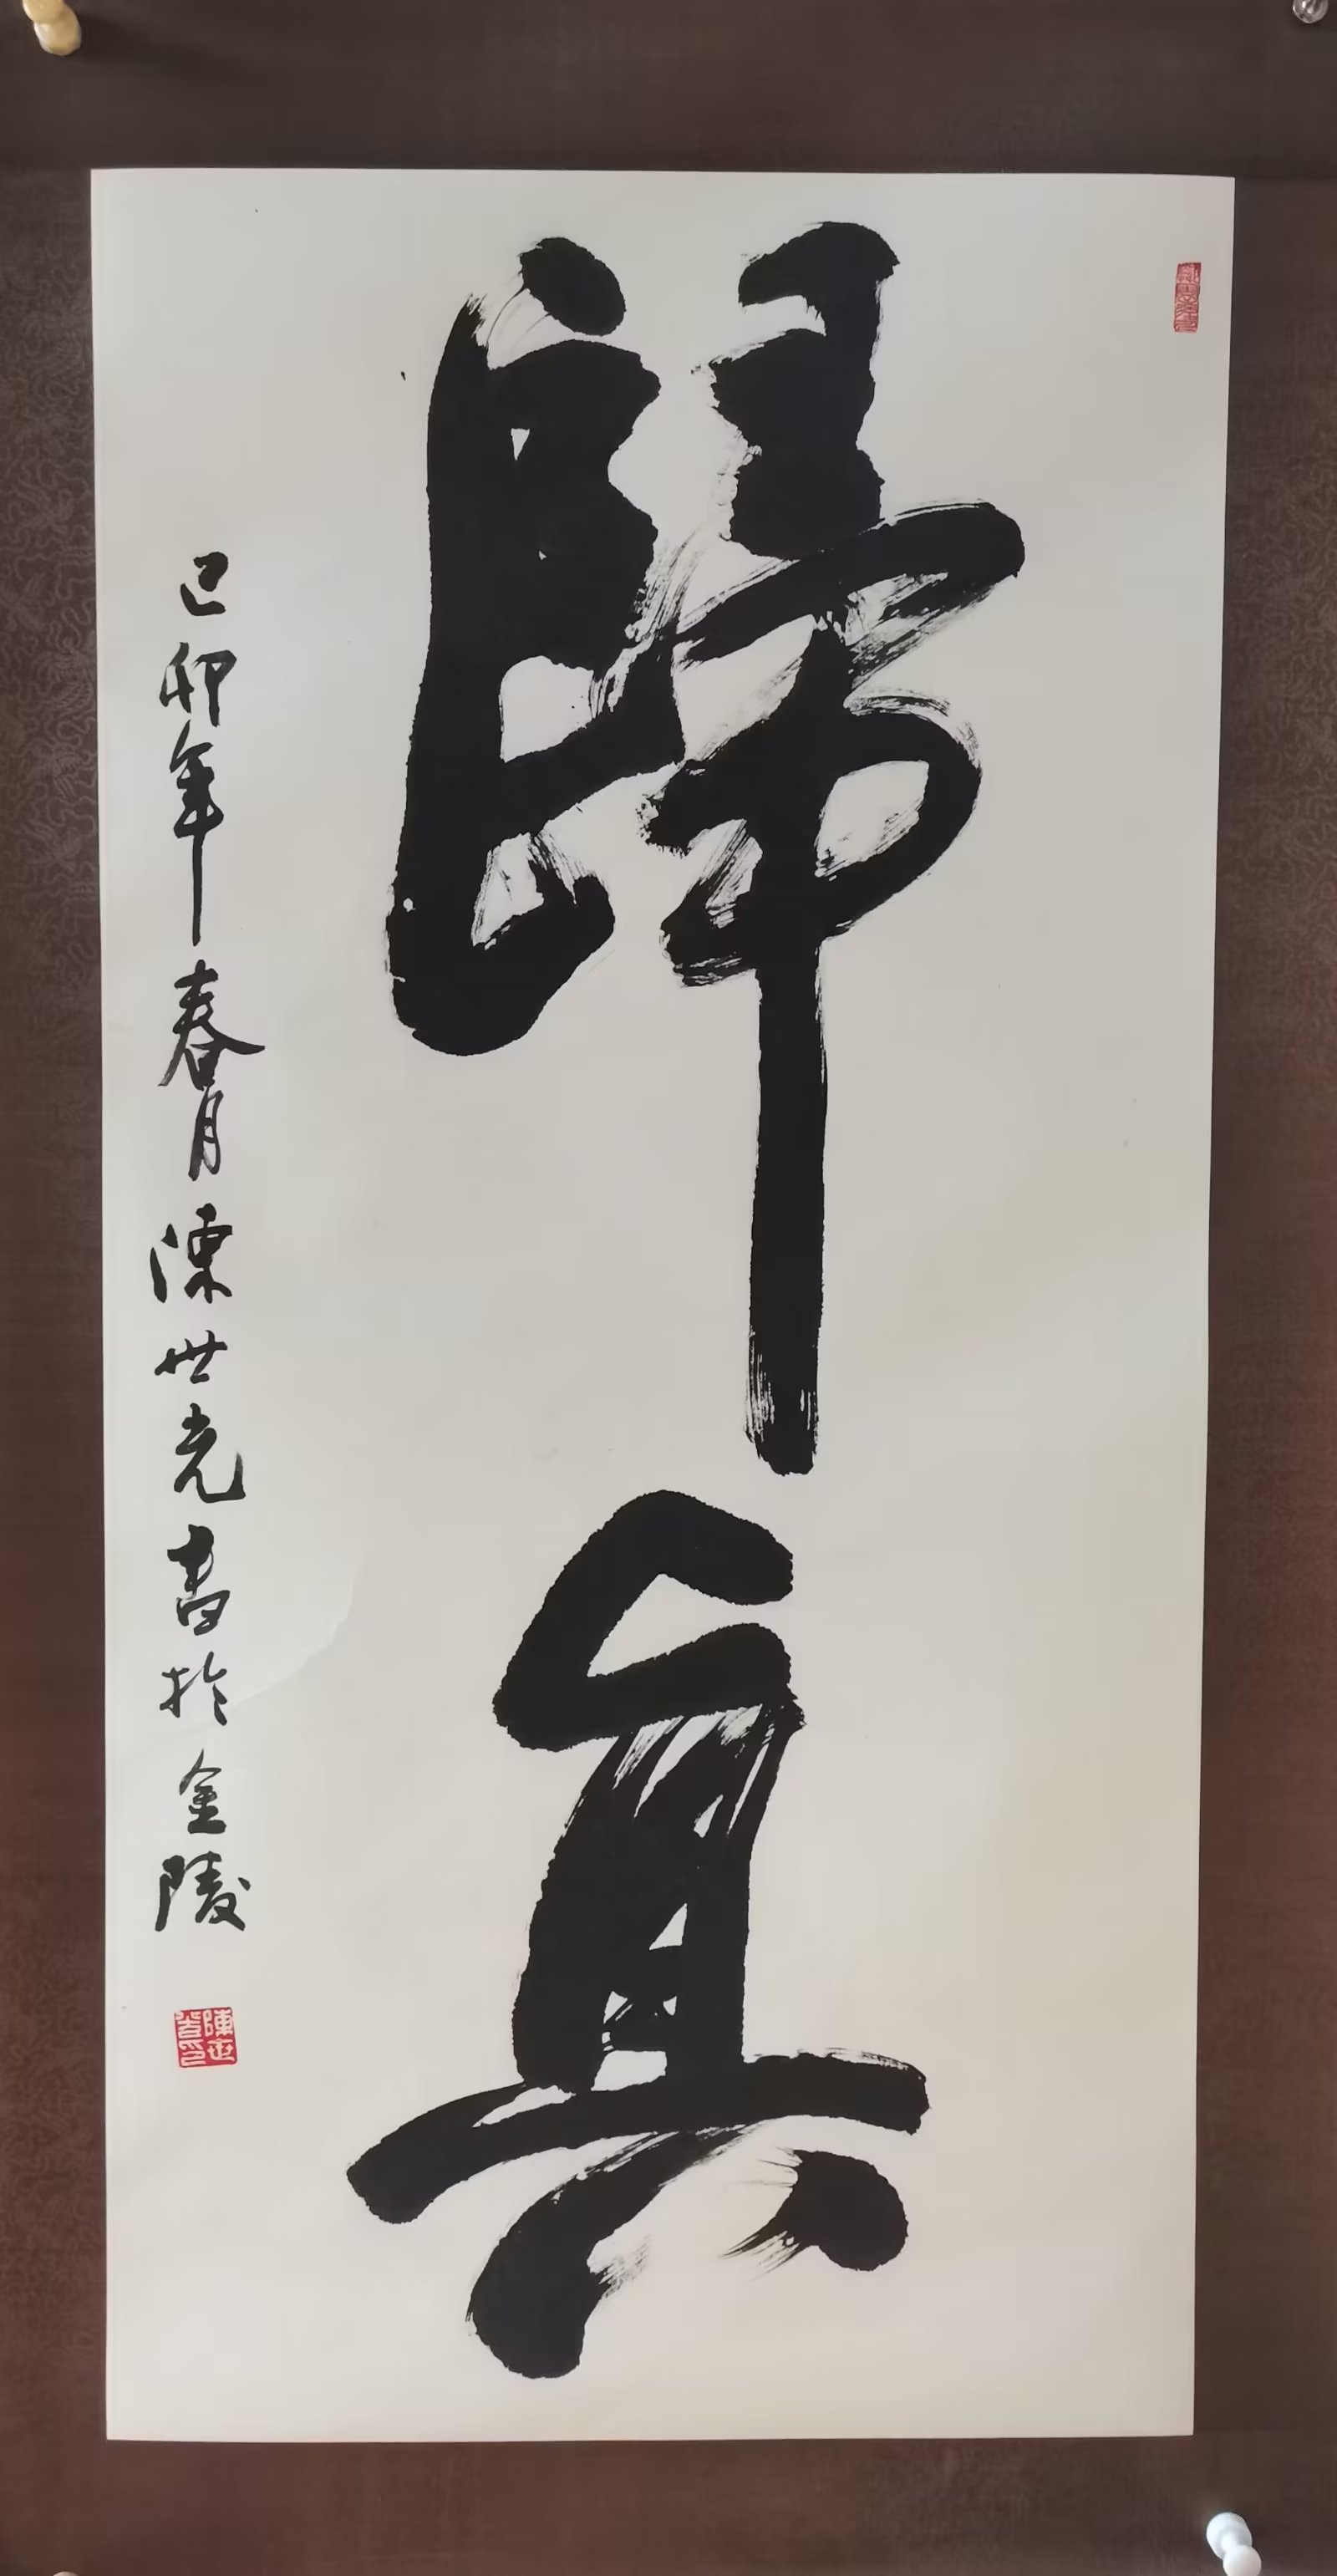 歸真
己卯年春月陳世光書於金陵
陳世光印